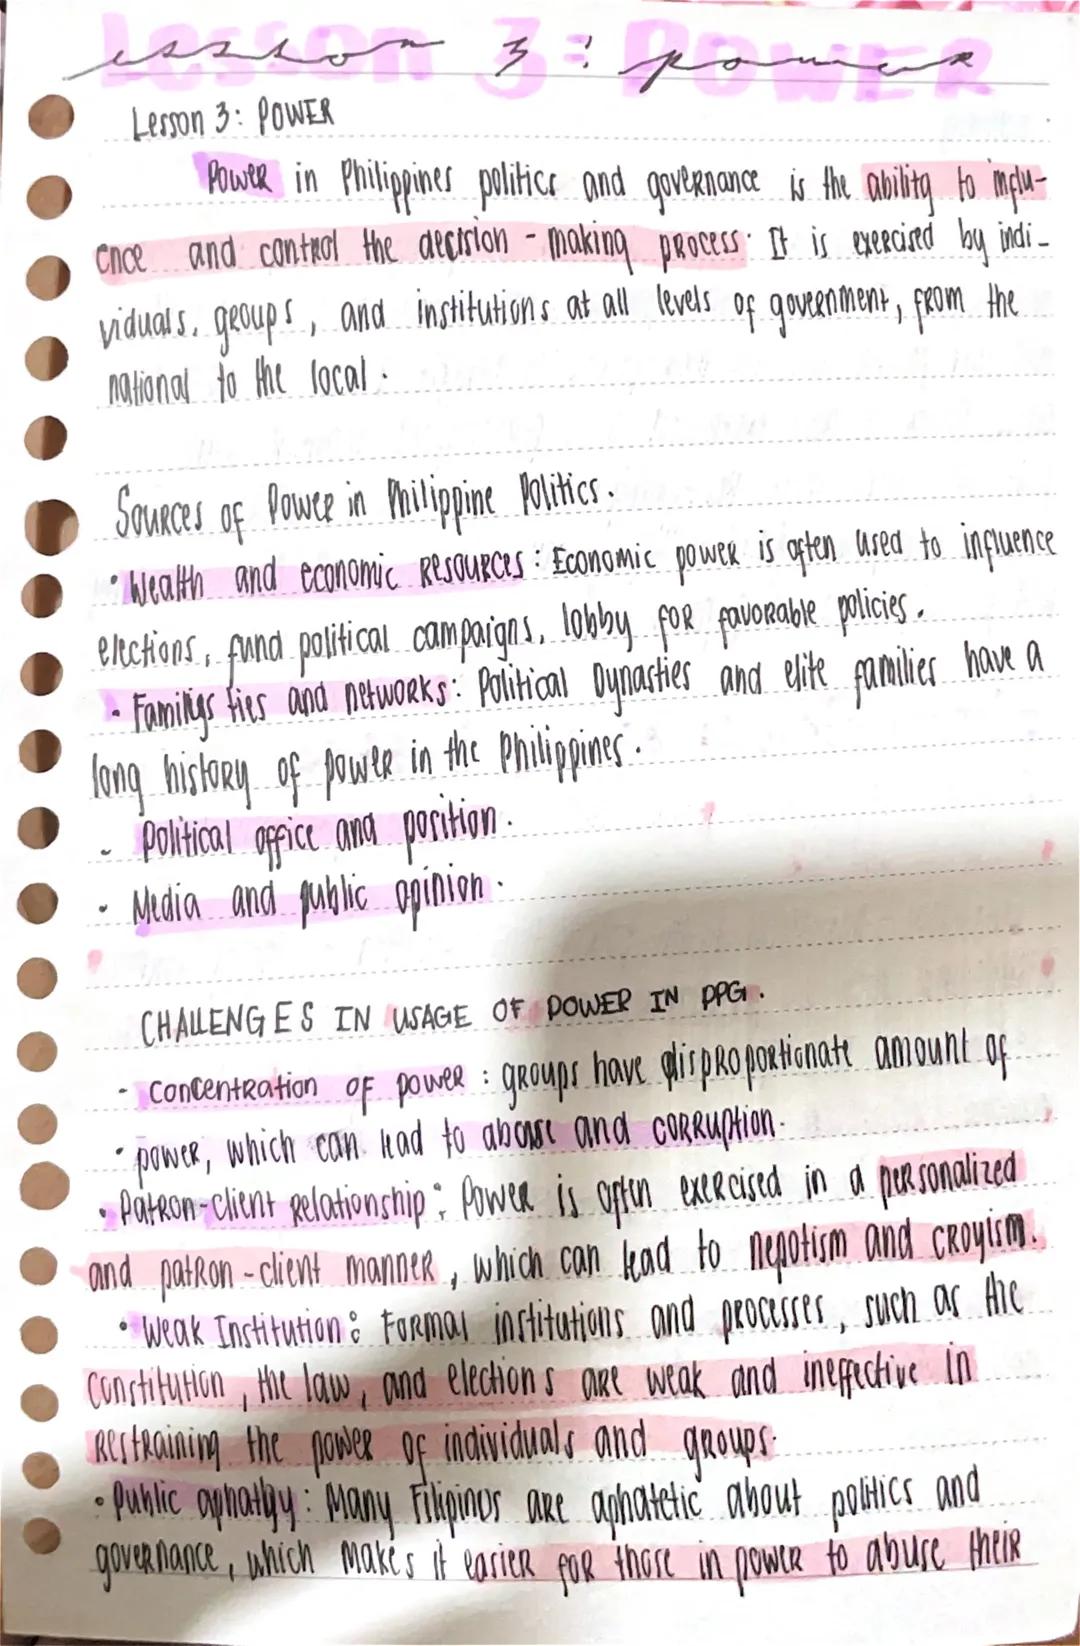 Lesson 3: POWER
lesson 3: power
Lesson 3: POWER
Power in Philippines politics and governance is the ability to influ-
ence and control the decision - making process. It is exercised by indi-
viduals, groups, and institutions at all levels of government, from the
national to the local.
Sources of Power in Philippine Politics.
• Wealth and economic Resources: Economic power is often used to influence
elections, fund political campaigns, lobby for favorable policies.
• Familiys ties and networks: Political Dynasties and elite families have a
long history of power in the Philippines.
- Political office and position.
• Media and public opinion.
CHALLENGES IN USAGE OF POWER IN PPG.
- Concentration of power: groups have disproportionate amount of
• power, which can lead to abuse and corruption.
• Patron-client Relationship: Power is often exercised in a personalized
and patron-client manner, which can lead to nepotism and croyism.
• Weak Institution: Formal institutions and processes, such as the
Constitution, the law, and elections are weak and ineffective in
Restraining the power of individuals and groups.
• Public aphathy: Many Filipinos are aphatetic about politics and
governance, which makes it easier for those in power to abuse their